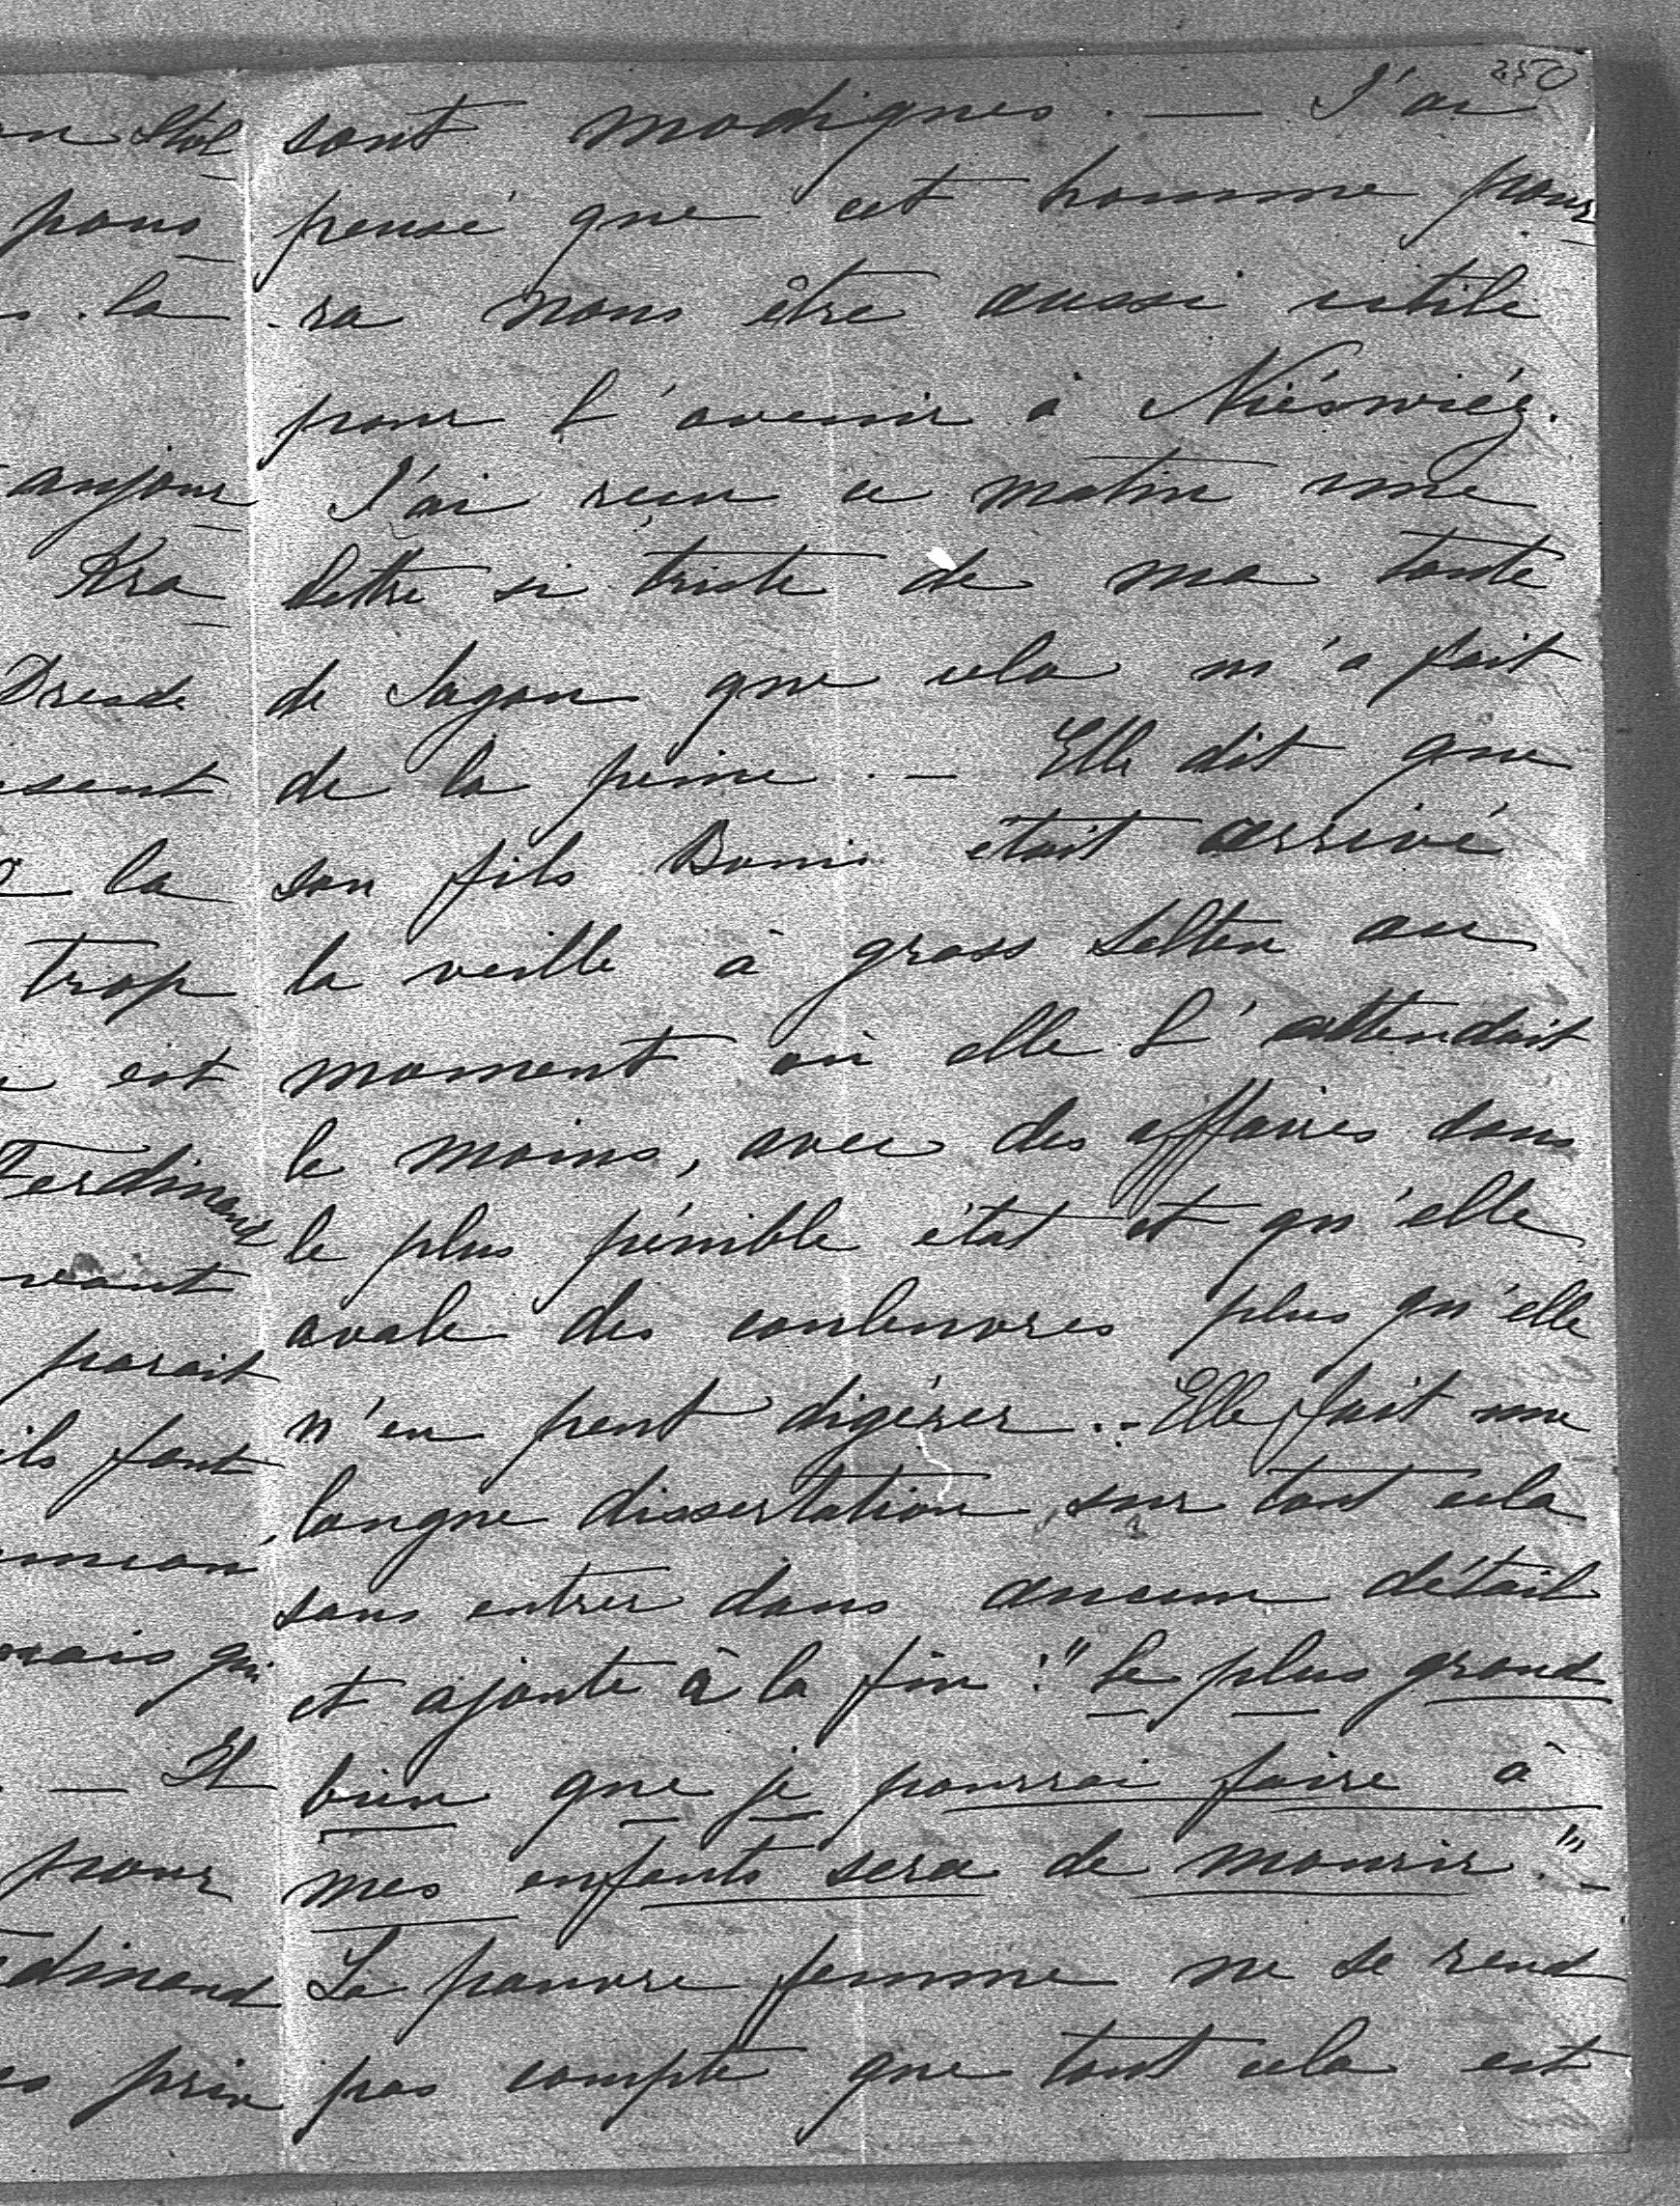 250
sont modiques. — J'ai
pensé que cet homme pour
-ra nous être aussi utile
pour l'avenir à Niéswiéz.
J'ai reçu ce matin une
lettre si triste de ma tante
de Sagan que cela m'a fait
de la peine. — Elle dit que
son fils Boni était arrivé
la veille à gross Selten au
moment où elle l'attendait
le moins, avec des affaires dans
le plus pénible état et qu'elle
avale des couleuvres plus qu'elle
n'en peut digérer. - Elle fait une
longue dissertation, sur tout cela
sans entrer dans aucun détail
et ajoute à la fin : "Le plus grand
bien que je pourrai faire à
mes enfants sera de mourir." -
La pauvre femme ne se rend
pas compte que tout cela est
pour
la
aujour
Kra
Dresde
sent
la
trop
est
Ferdinand
vant
parait
ils font
mais qui
— Il
pour
dinand
prin